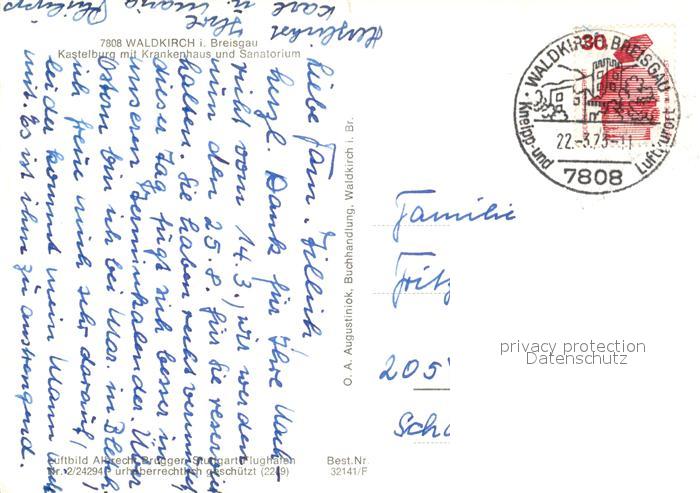 7808 WALDKIRCH i. Breisgau
Kastelburg mit Krankenhaus und Sanatorium
Liebe Fam. Zillich
herzl. Dank für Ihre Nach-
richt vom 14.3., wir werden
nun den 25.8. für Sie reservie
halten. Sie haben recht vermutet
dieser Tag fügt sich besser in
unseren Terminkalender. Über
Ostern bin ich bei Mar. in
ich freue mich sehr darauf,
leider kommt mein Mann nicht
mit. Es ist ihm zu anstrengend.
Herzlichst
Ihre
Karl u. Maria Philipp
O. A. Augustiniok, Buchhandlung, Waldkirch i. Br.
30
WALDKIRCH BREISGAU
22.-3.75-11
Kneipp- und Luftkurort
7808
Familie
Fritz
205
Sch
privacy protection
Datenschutz
Luftbild Albrecht Brugger, Stuttgart-Flughafen
Nr. 2/24294 urheberrechtlich geschützt (2289)
Best.Nr.
32141/F